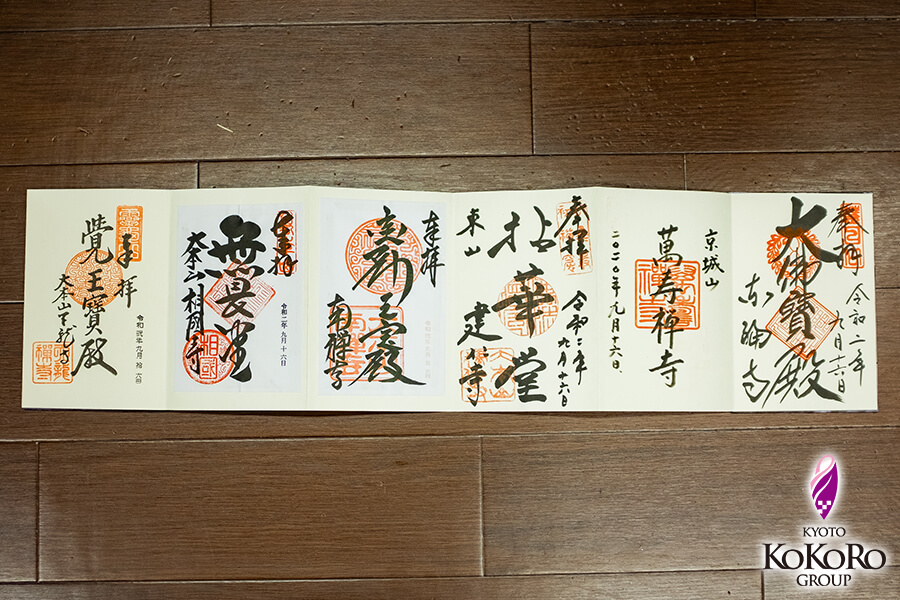 奉拝
大佛寳殿
東福寺
令和二年
九月十六日
京城山
萬寿禅寺
二〇二〇年九月十六日
奉拝
拈華堂
東山
建仁寺
令和二年
九月十六日
奉拝
南禅寺
奉拝
無畏堂
大本山相国寺
令和二年九月十六日
奉拝
覺王寳殿
大本山天龍寺
令和弐年九月拾六日
KYOTO
KoKoRo
GROUP